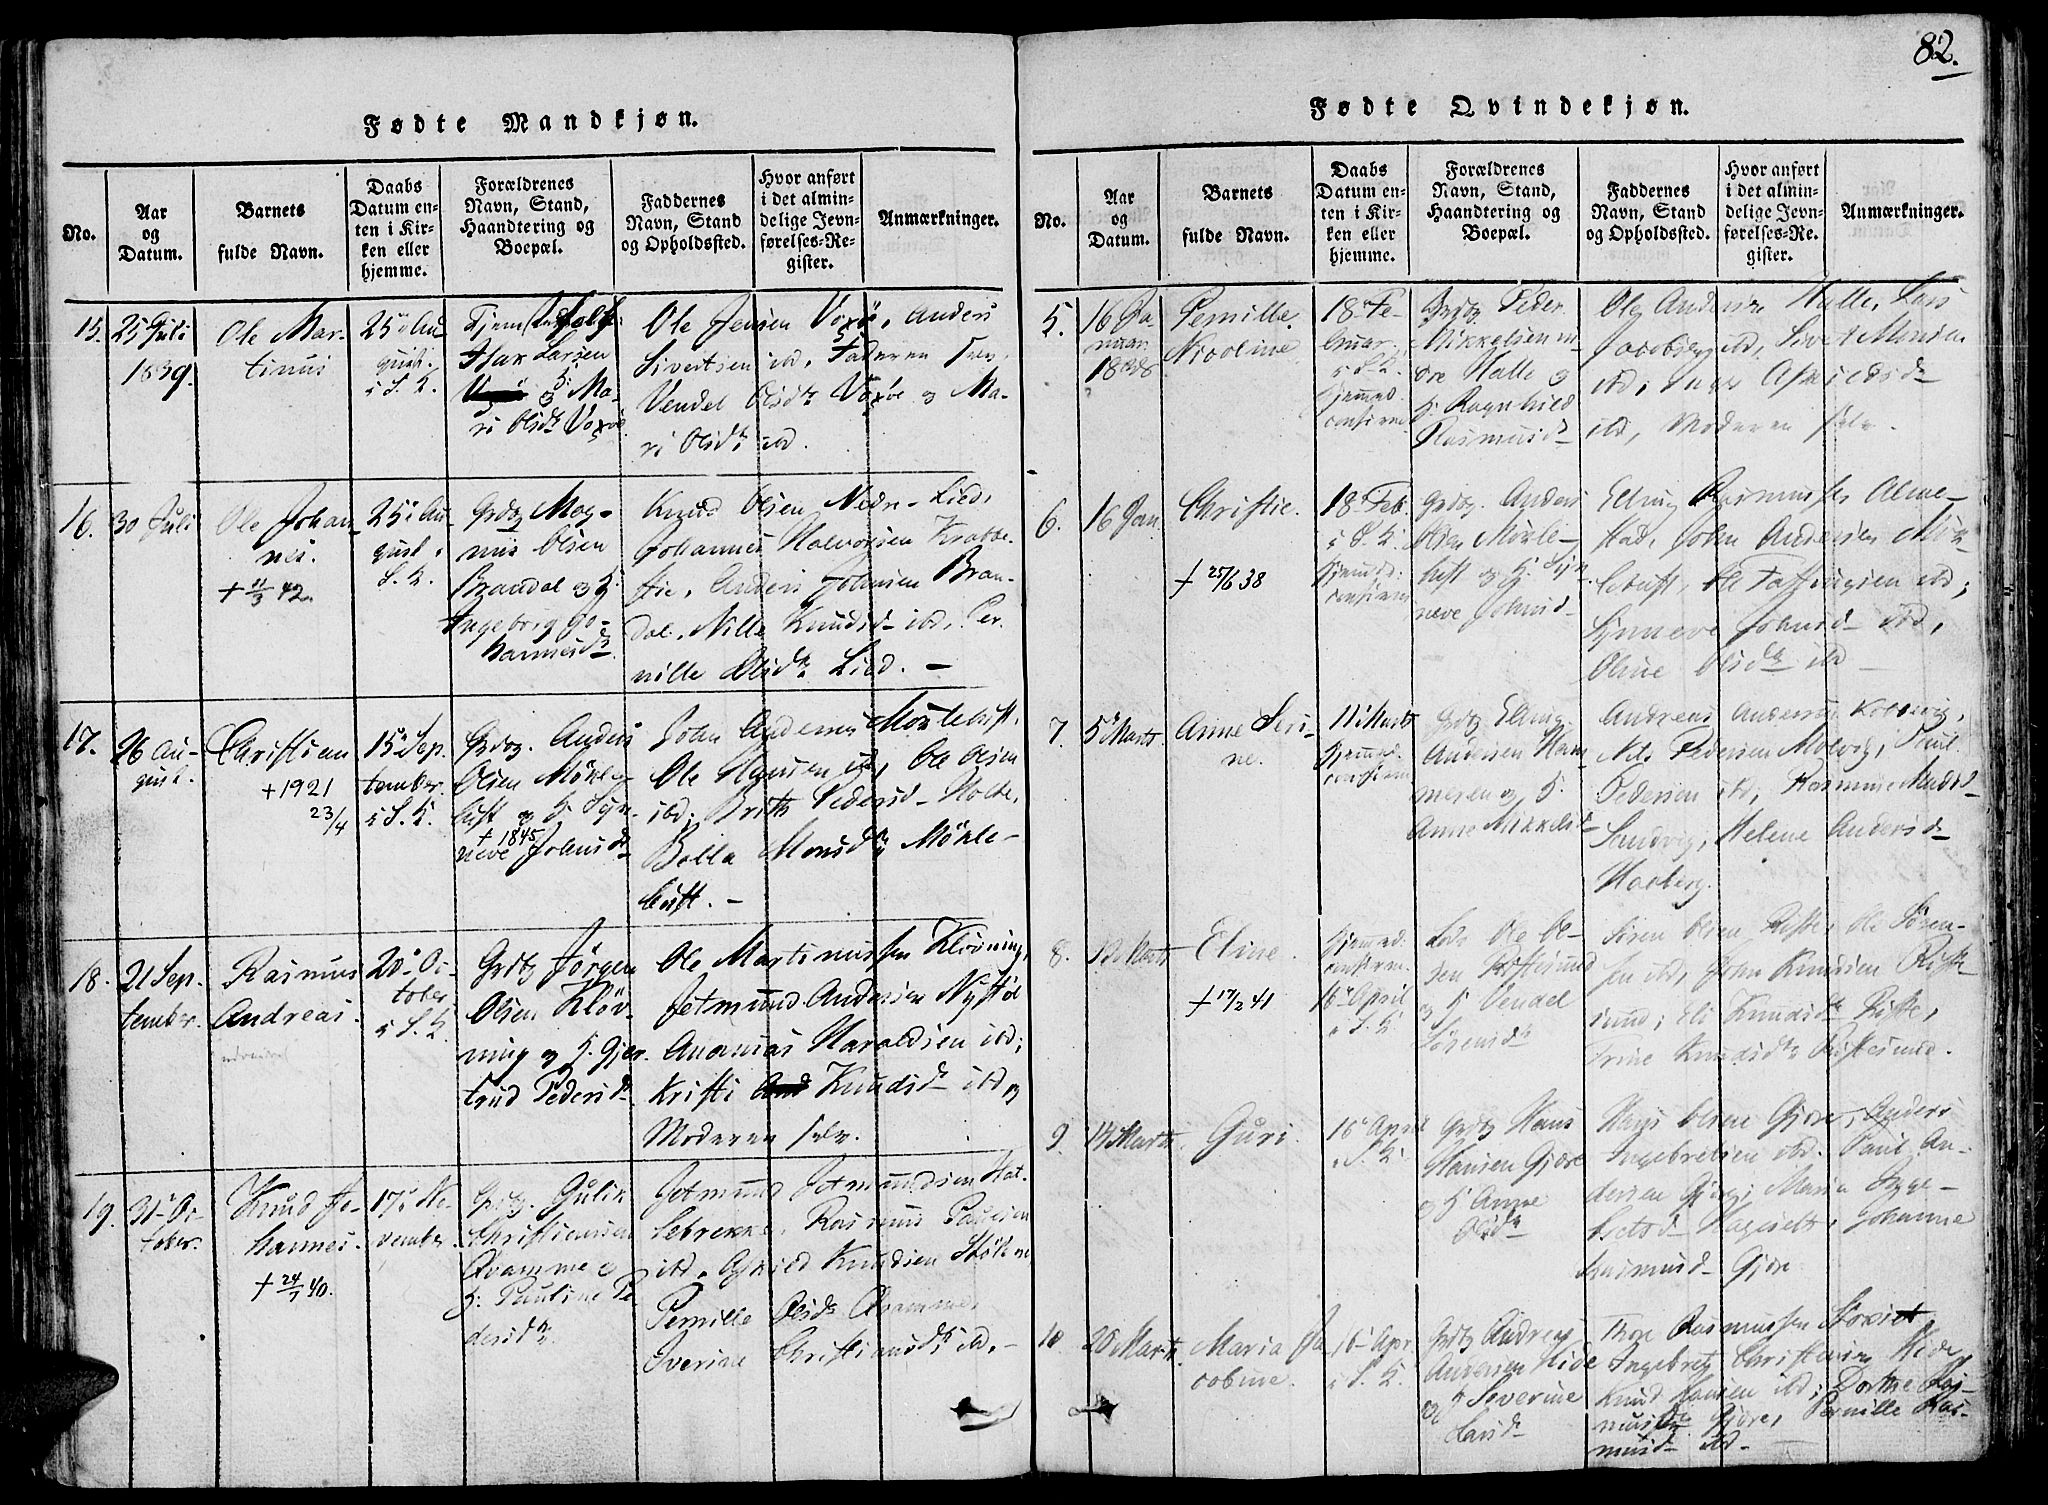 82.
Fødte Mandkjøn.
No.
Aar
og
Datum.
Barnets
fulde Navn.
Daabs
Datum en-
ten i Kir-
ken eller
hjemme.
Forældrenes
Navn, Stand,
Haandtering og
Boepæl.
Faddernes
Navn, Stand
og Opholdssted.
Hvor anført
i det almin-
delige Jevn-
førelses-Re-
gister.
Anmærkninger.
15.
25 Juli
1839.
Ole Mar-
tinus
25 Au-
gust i
S. K.
Isak Larsen
og H: Ma-
ri Olsdr Voxø
Ole Jensen Voxø, Anders
Sivertsen ibd, Faderen selv
Vendel Olsdr Voxøe og Ma-
ri Olsdr ibd.
16.
30 Juli
Ole Johan-
nes.
+ 11/3 42.
25 Au-
gust i
S. K.
Grdbg Mag-
nus Olsen
Brandal og H.
Ingeborg Jo-
hannesdr
Knud Olsen Nedr-Lied,
Johannes Halvorsen Krabbe-
stie, Anders Johnsen Bran-
dal, Nille Knudsd ibd, Per-
nille Olsdr Lied. –
17.
26 Au-
gust.
Christian
+1921
23/4
15 Sep-
tember
i S. K.
Grdbg. Anders
Olsen Mørkle-
bust og H. Syn-
+ 1845
neve Johnsdr
John Andersen Mörklebust,
Ole Hansen ibd, Ole Olsen
ibd; Brith Pedersd Holte,
Bolla Monsdr Mörkle-
bust. –
18.
21 Sep-
tember.
Rasmus
Andreas.
20 Oc-
tober
i S. K.
Grdbg Jørgen
Olsen Kløv-
ning og H. Gjer-
trud Pedersdr
Ole Martinussen Kløvning,
Jetmund Andersen Nystöl
Ananias Haraldsen ibd;
Kristi Knudsdr ibd og
Moderen selv.
19.
31 Oc-
tober.
Knud Jo-
hannes.
+ 24/7 40.
17 No-
vember.
Grdbg. Gulik
Christiansen
Qvamme og
H: Pauline Pe-
dersdr
Jetmund Jetmundsen Hat-
lebrekke, Rasmus Paulsen
ibd, Askild Knudsen Støle
Pernille Olsdr Qvamme,
Iverine Christiansdr ibd. –
Fødte Qvindekjøn.
No.
Aar
og
Datum.
Barnets
fulde Navn.
Daabs
Datum en-
ten i Kir-
ken eller
hjemme.
Forældrenes
Navn, Stand,
Haandtering og
Boepæl.
Faddernes
Navn, Stand
og Opholdssted.
Hvor anført
i det almin-
delige Jevn-
førelses-Re-
gister.
Anmærkninger.
5.
16 Ja-
nuar
1838
Pernille
Nicoline
18 Fe-
bruar
i S. K.
hjemmed.
confirm.
Grdbg Peder
Mikkelsen in-
dre Halle og
H: Ragnhild
Rasmusd
Ole Andersen Halle, Lars
Jacobsen ibd, Sivert Monsen
ibd; Inger
ibd, Moderen selv.
6.
16 Jan.
Christie.
+ 25/6 38
18 Feb.
i S. K.
hjemmed:
confirm
Grdbg. Anders
Olsen Mörkle-
bust og H. Syn-
neve Johnsd
Elling Rasmussen Alme-
stad, John Andersen Mörk-
lebust, Ole ibd;
Synneve Johnsd ibd,
Oline Olsdr ibd –
7.
5 Marts
Anne Seri-
ne.
11 Marts
hjemmed.
confirm
Grdbg Elling
Andersen Ham-
meren og H.
Anne Mikkelsd
Andreas Andersen Kobbevig,
Nils Pedersen Molvig; Poul
Pedersen ibd, Rasmine
Sandvig; Helene Andersd
Hasberg.
8.
Marts
Eline.
+ 17/2 41
hjemmed:
confirm.
16 April
i S. K.
Ole Ol-
sen Ristesund
og H Vendel
Sørensdr
Søren Olsen Riste, Ole Søren-
sen ibd, John Knudsen Riste-
sund; Eli Knudsdr Riste,
Trine Knudsdr Ristesund.
9.
Marts
Guri.
16 April
i S. K.
Grdbg Hans
Hansen Gjøre
og H Anne
Olsdr
Olsen Gjøre, Anders
Ingebretsen ibd. Paul An-
dersen Maria
Hageset, Johanne
Rasmusd Gjøre
10
20 Marts.
Maria Ja-
cobine.
16 Apr.
i S. K.
Grdbg Andreas
Andersen Hide
og H Severine
Larsdr
Thor Rasmussen
Ingebregt Christensen Hide
Knud Hansen ibd; Dorthe Ras-
musdr Gjøre, Pernille Ras-
musd ibd –